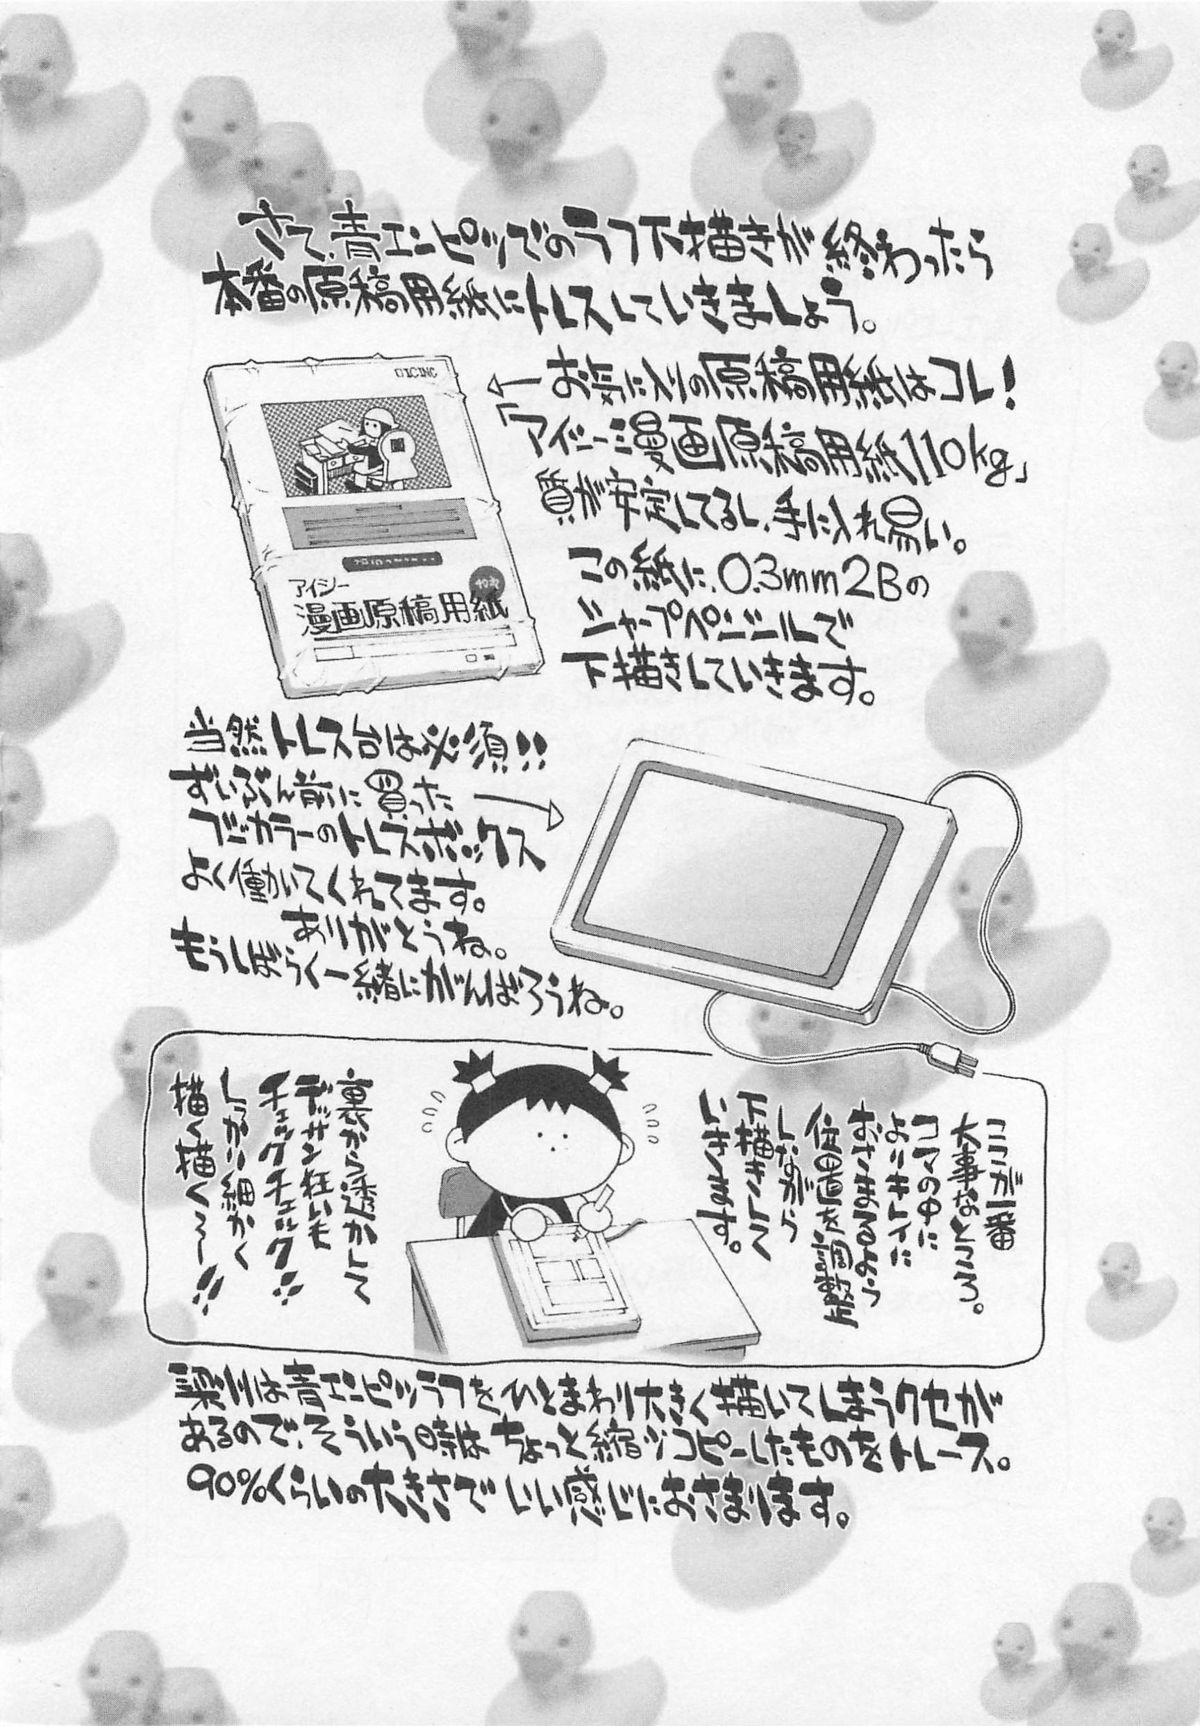 さて、青エンピツでのラフ下描きが終わったら
本番の原稿用紙にトレスしていきましょう。
←お気に入りの原稿用紙はコレ！
「アイシー漫画原稿用紙110kg」
質が安定してるし、手に入れ易い。
この紙に、0.3mm2Bの
シャープペンシルで
下描きしていきます。
ICINC
アイシー
漫画原稿用紙
当然トレス台は必須!!
ずいぶん前に買った→
フジカラーのトレスボックス
よく働いてくれてます。
ありがとうね。
もうしばらく一緒にがんばろうね。
ここが一番
大事なところ。
コマの中に
よりキレイに
おさまるよう
位置大調整
しながら
下描きして
いきます。
裏から透かして
デッサン狂いも
チェックチェック!!
しっかり細かく
描く描く～～!!
は青エンピツラフをひとまわり大きく描いてしまうクセが
あるので、そういう時はちょっと縮小コピーしたものをトレース。
90%くらいの大きさでいい感じにおさまります。